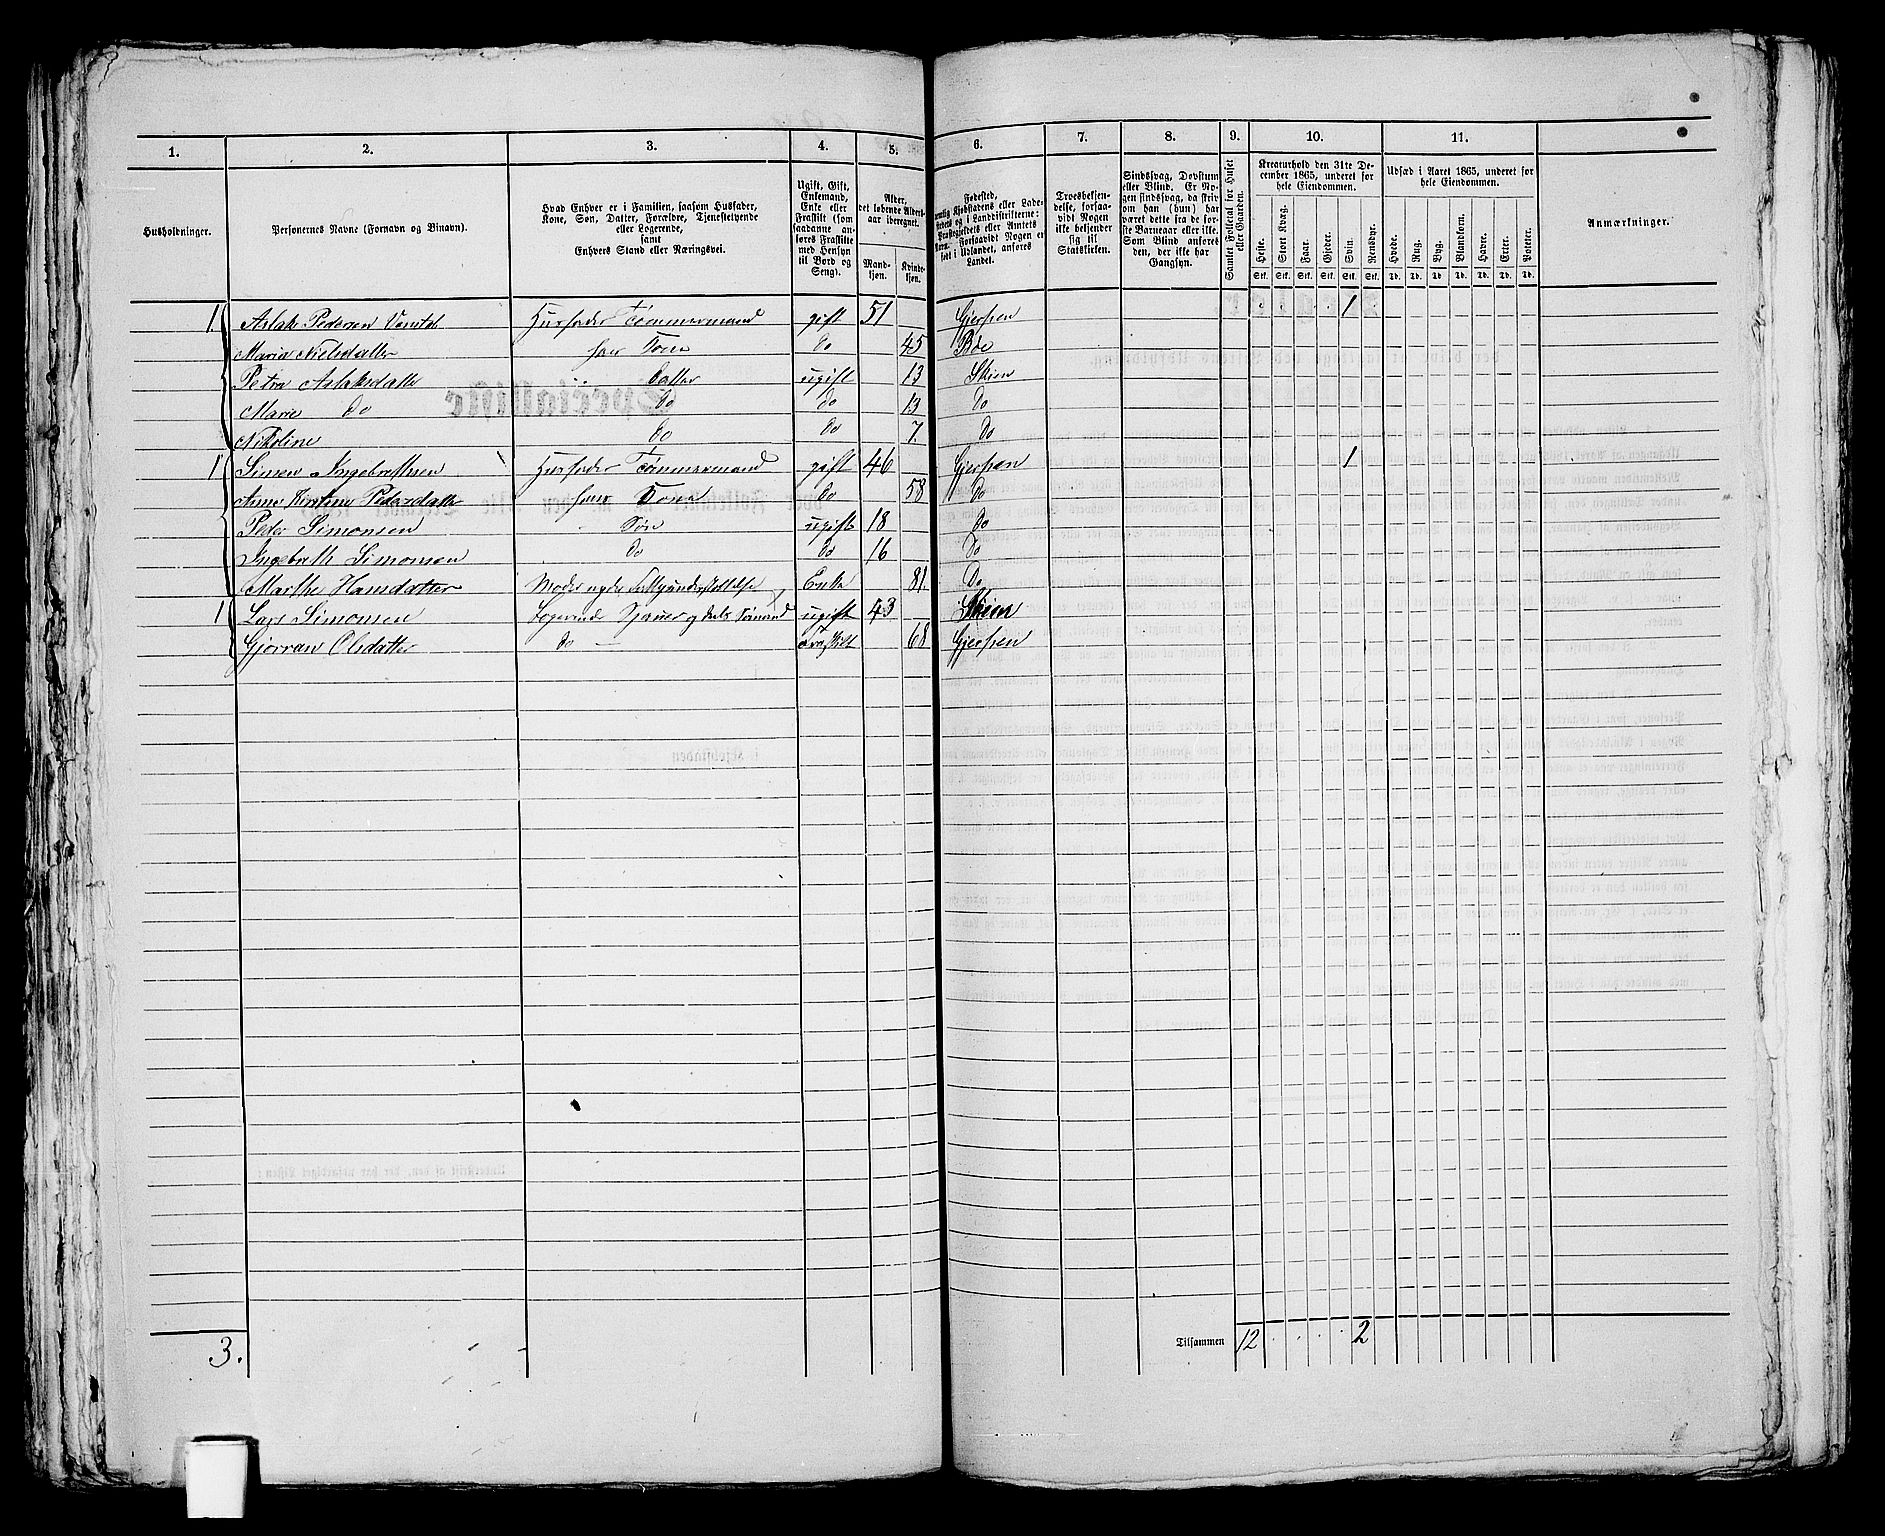 1. 2. 3. 4. 5. 6. 7. 8. 9. 10. 11.
Husholdninger.
Personernes Navne (Fornavn og Binavn).
Hvad Enhver er i Familien, saasom Husfader,
Kone, Søn, Datter, Forældre, Tjenestetyende
eller Logerende,
samt
Enhvers Stand eller Næringsvei.
Ugift, Gift,
Enkemand,
Enke eller
Fraskilt (som
saadanne an-
føres Fraskilte
med Hensyn
til Bord og
Seng).
Alder,
det løbende Alders-
aar iberegnet.
Mand-
kjøn.
Kvinde-
kjøn.
Fødested,
Kjøbstadens eller Lade-
stedets og i Landdistrikterne:
Præstegjeldets eller Annets
Navn. Forsaavidt Nogen er
født i Udlandet, anføres
Landet.
Troesbekjen-
delse, forsaa-
vidt Nogen
ikke bekjender
sig til
Statskirken.
Sindssvag, Døvstum
eller Blind. Er No-
gen sindssvag, da skriv
om han (hun) har
været dette fra de
første Barneaar eller ikke.
Som Blind anføres
den, der ikke har
Gangsyn.
Samlet Folketal for Huset
eller Gaarden.
Kreaturhold den 31te De-
cember 1865, underet for
hele Eiendommen.
Heste. Stort Kvæg. Faar. Gjeder. Svin. Rensdyr.
Stk. Stk. Stk. Stk. Stk. Stk.
Udsæd i Aaret 1865, underet for
hele Eiendommen.
Hvede. Rug. Byg. Blandkorn. Havre. Erter. Poteter.
Td. Td. Td. Td. Td. Td. Td.
Anmærkninger.
1. Aslak Pedersen Husfader Tømmermand gift 51 Gjerpen 1
Maria Nielsdatter hans Kone do 45 Bøe
Petra Aslaksdatter Datter ugift 13 Skien
Marie do do do 13 do
Nikoline do do 7. do
1 Simen Ingebrethsen Husfader Tømmermand gift 46 Gjerpen 1
Anne Kirstine Pedersdatter hans Kone do 58 do
Peder Simonsen Søn ugift 18 do
Ingebreth Simonsen do do 16 do
Marthe Hansdatter Moder nyder Fattigunderstøttelse Enke 81. do
1 Lars Simonsen Logerende ugift 43 Skien
Gjorran Olsdatter do fraskilt 68 Gjerpen
3. Tilsammen 12 2